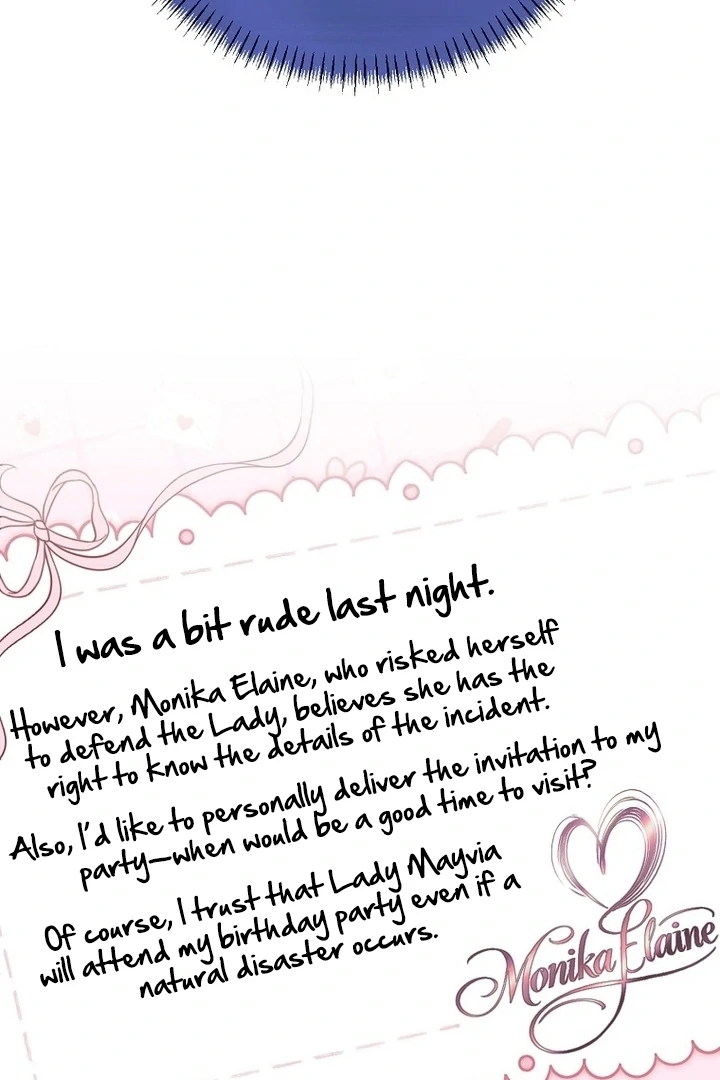 I was a bit rude last night.
However, Monika Elaine, who risked herself
to defend the Lady, believes she has the
right to know the details of the incident.
Also, I'd like to personally deliver the invitation to my
party—when would be a good time to visit?
Of course, I trust that Lady Mayvia
will attend my birthday party even if a
natural disaster occurs.
Monika Elaine